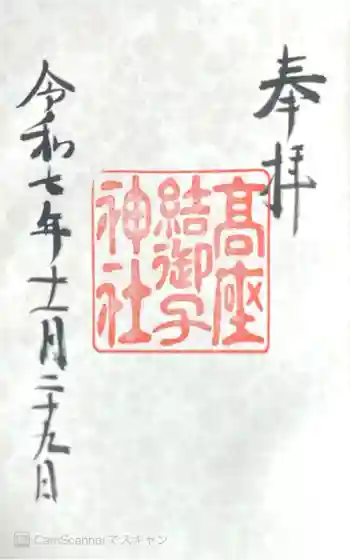 奉拝
高座
結御子
神社
令和七年十一月二十九日
CamScannerでスキャン